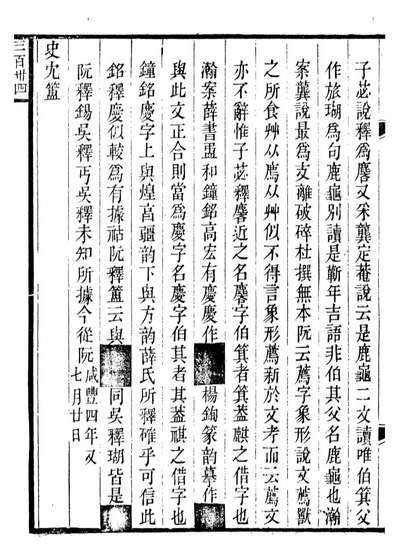 子苾說釋為麐又采龔定菴說云是鹿龜二文讀唯伯箕父
作旅瑚為句鹿龜別讀是蘄年吉語非伯其父名鹿龜也瀚
案龔說最為支離破碎杜撰無本阮云薦字象形說文薦獸
之所食艸从廌从艸似不得言象形薦新於文考而云薦文
亦不辭惟子苾釋麐近之名麐字伯箕者箕蓋麒之借字也
瀚案薛書盄和鐘銘高宏有慶慶作楊鉤篆韵摹作
與此文正合則當為慶字名慶字伯其者其蓋祺之借字也
鐘銘慶字上與煌亯疆韵下與方韵薛氏所釋確乎可信此
銘釋慶似較為有據祜阮釋簠云與同吳釋瑚皆是
阮釋錫吳釋丏吳釋未知所據今從阮咸豐四年又
七月廿日
史尤簠
三百卅四